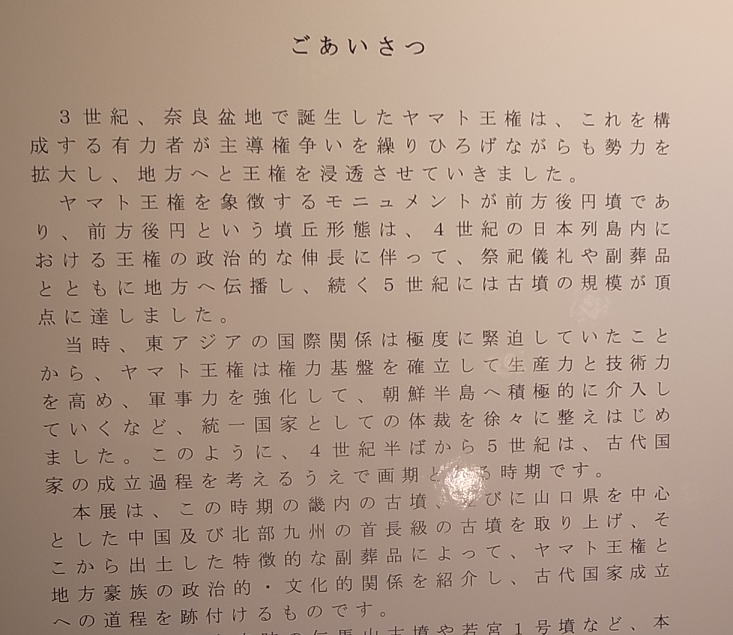 ごあいさつ
3世紀、奈良盆地で誕生したヤマト王権は、これを構
成する有力者が主導権争いを繰りひろげながらも勢力を
拡大し、地方へと王権を浸透させていきました。
ヤマト王権を象徴するモニュメントが前方後円墳であ
り、前方後円という墳丘形態は、4世紀の日本列島内に
おける王権の政治的な伸長に伴って、祭祀儀礼や副葬品
とともに地方へ伝播し、続く5世紀には古墳の規模が頂
点に達しました。
当時、東アジアの国際関係は極度に緊迫していたこと
から、ヤマト王権は権力基盤を確立して生産力と技術力
を高め、軍事力を強化して、朝鮮半島へ積極的に介入し
ていくなど、統一国家としての体裁を徐々に整えはじめ
ました。このように、4世紀半ばから5世紀は、古代国
家の成立過程を考えるうえで画期となる時期です。
本展は、この時期の畿内の古墳、並びに山口県を中心
とした中国及び北部九州の首長級の古墳を取り上げ、そ
こから出土した特徴的な副葬品によって、ヤマト王権と
地方豪族の政治的・文化的関係を紹介し、古代国家成立
への道程を跡付けるものです。
古墳や若宮1号墳など、本